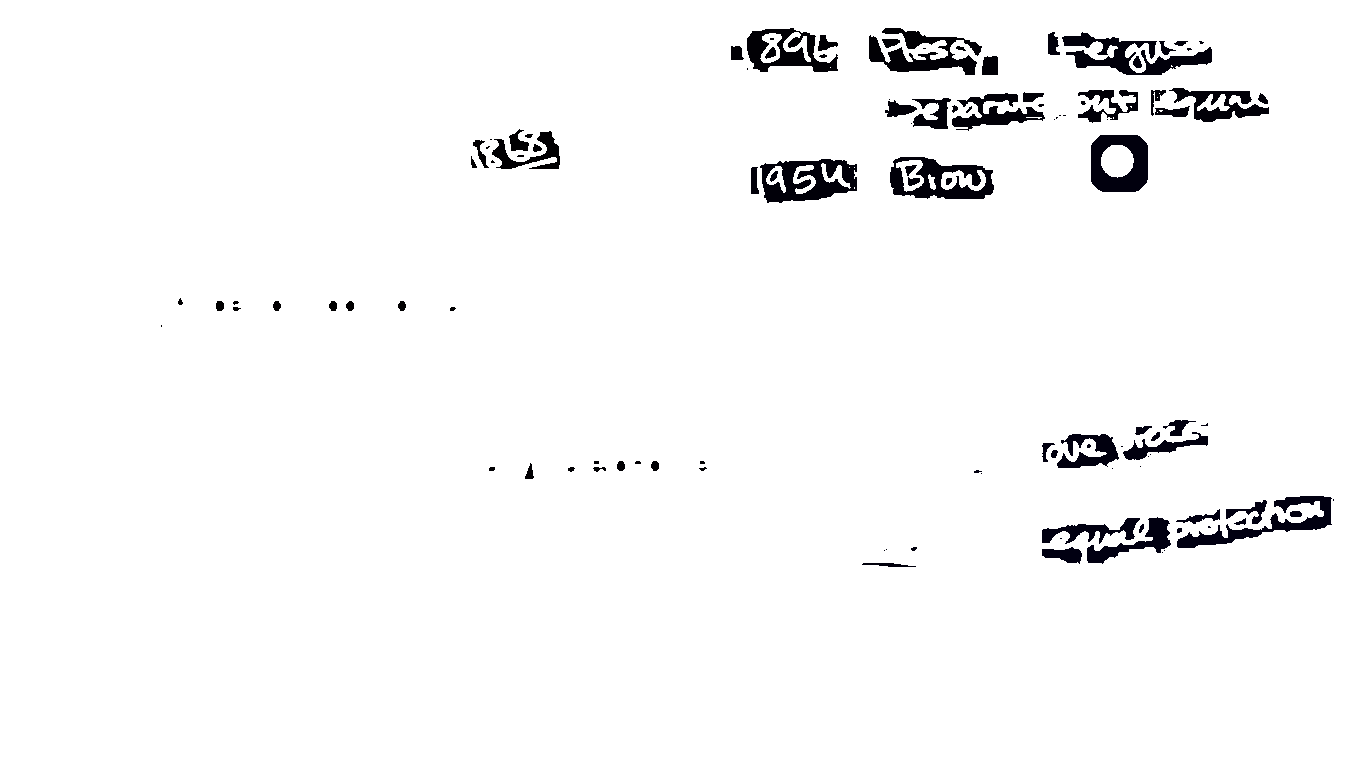 1896 Plessy Ferguso
Separate but equal
1868
1954 Brow
due proces
equal protection